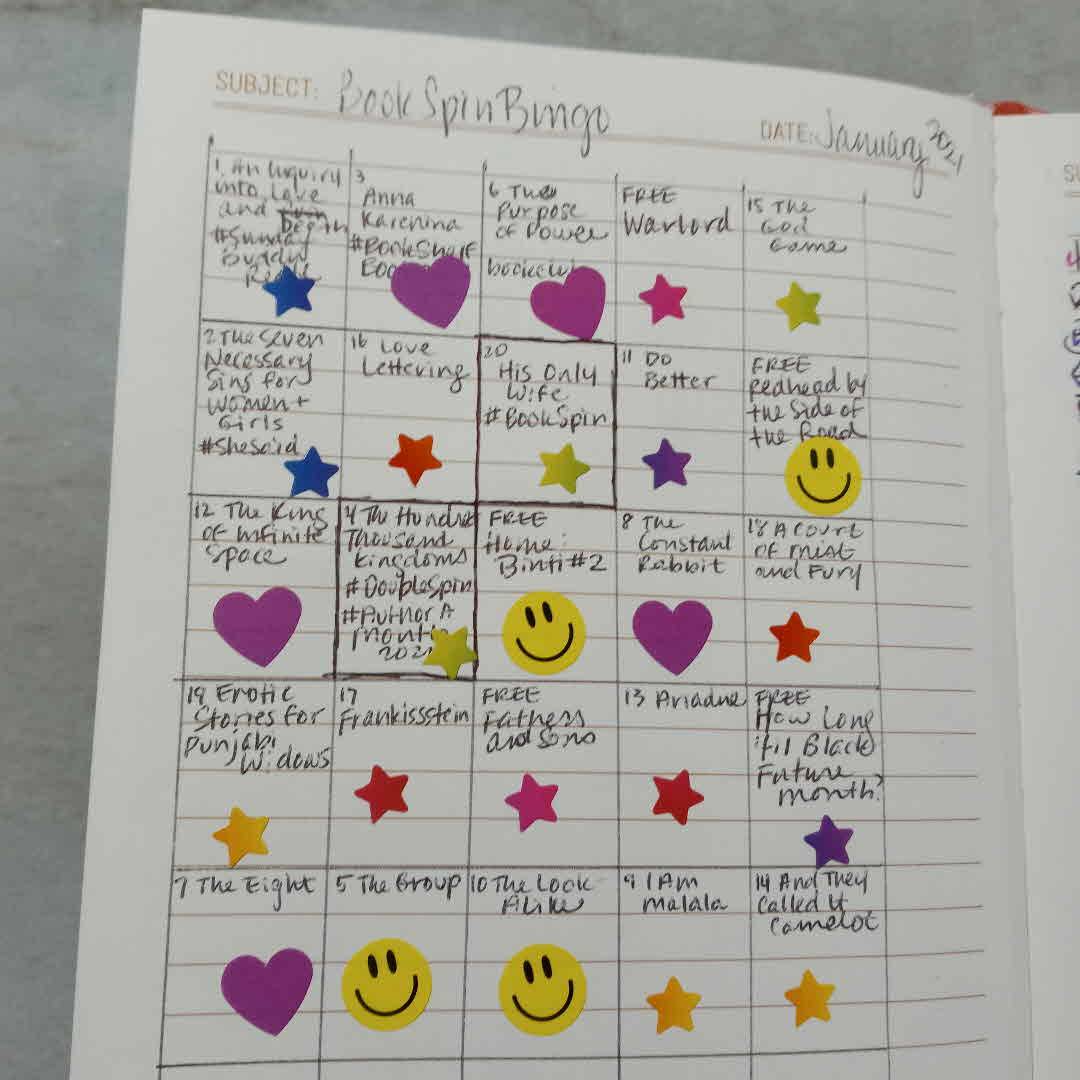 SUBJECT: BookSpinBingo
DATE: January 2021
1. An Inquiry
into Love
and Death
#Sunday
Buddy
3
Anna
Karenina
#BookShelf
6 The
Purpose
of Power
FREE
Warlord
15 The
God
Game
2 The Seven
Necessary
Sins for
Women +
Girls
#Shesaid
16 Love
Lettering
20
His Only
Wife
#BookSpin
11 Do
Better
FREE
Redhead by
the Side of
the Road
12 The King
of Infinite
Space
4 The Hundred
Thousand
Kingdoms
#DoubleSpin
#Author A
Month
2021
FREE
Home:
Binti #2
8 The
Constant
Rabbit
18 A Court
of Mist
and Fury
19 Erotic
Stories for
Punjabi
Widows
17
Frankissstein
FREE
Fathers
and Sons
13 Ariadne
FREE
How Long
'til Black
Future
Month?
7 The Eight
5 The Group
10 The Look-
Alike
9 I Am
Malala
14 And They
Called It
Camelot